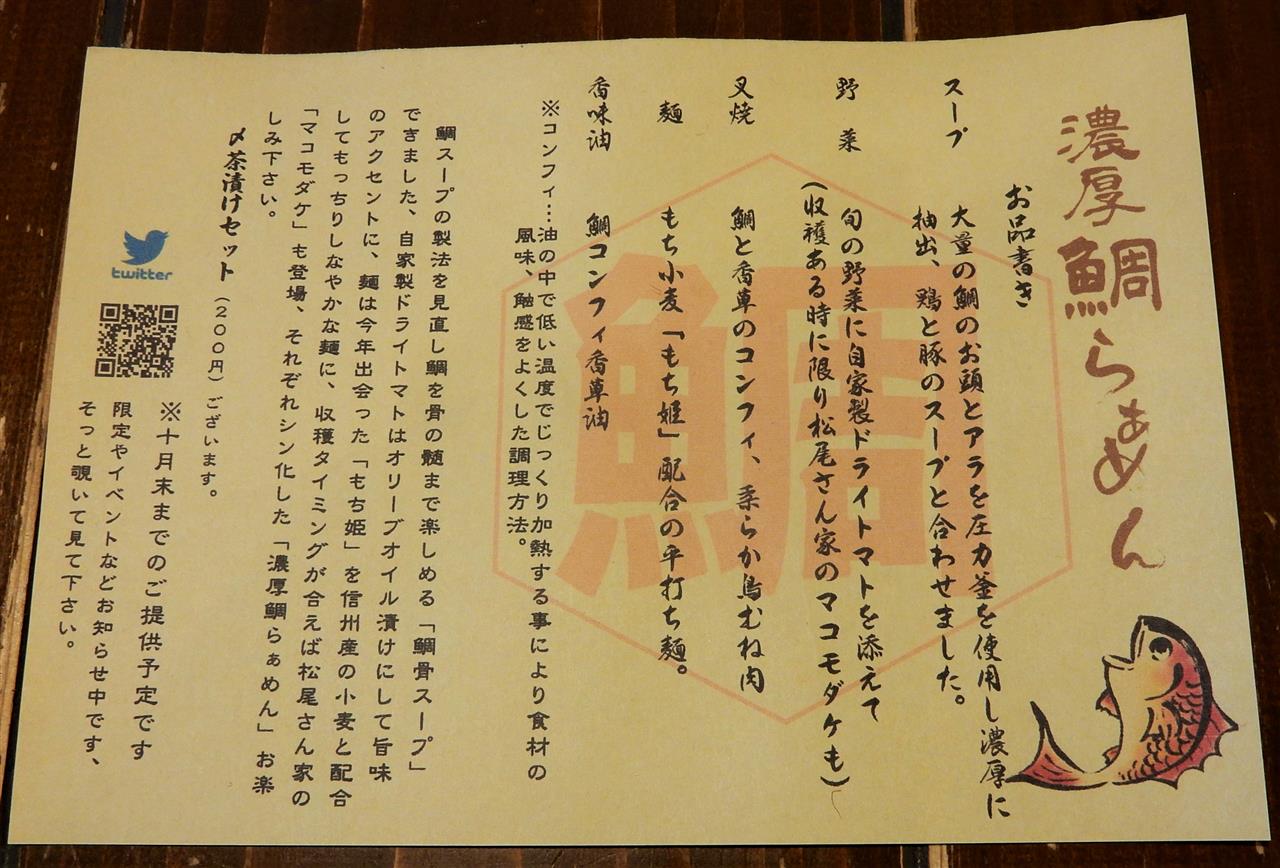 濃厚鯛らぁめん
お品書き
スープ
大量の鯛のお頭とアラを圧力釜を使用し濃厚に
抽出、鶏と豚のスープと合わせました。
野菜
旬の野菜に自家製ドライトマトを添えて
(収穫ある時に限り松尾さん家のマコモダケも)
叉焼
鯛と香草のコンフィ、柔らか鳥むね肉
麺
もち小麦「もち姫」配合の平打ち麺。
香味油
鯛コンフィ香草油
※コンフィ…油の中で低い温度でじっくり加熱する事により食材の
風味、触感をよくした調理方法。
鯛スープの製法を見直し鯛を骨の髄まで楽しめる「鯛骨スープ」
できました、自家製ドライトマトはオリーブオイル漬けにして旨味
のアクセントに、麺は今年出会った「もち姫」を信州産の小麦と配合
してもっちりしなやかな麺に、収穫タイミングが合えば松尾さん家の
「マコモダケ」も登場、それぞれシン化した「濃厚鯛らぁめん」お楽
しみ下さい。
〆茶漬けセット(200円)ございます。
※十月末までのご提供予定です
限定やイベントなどお知らせ中です、
そっと覗いて見て下さい。
twitter
鯛